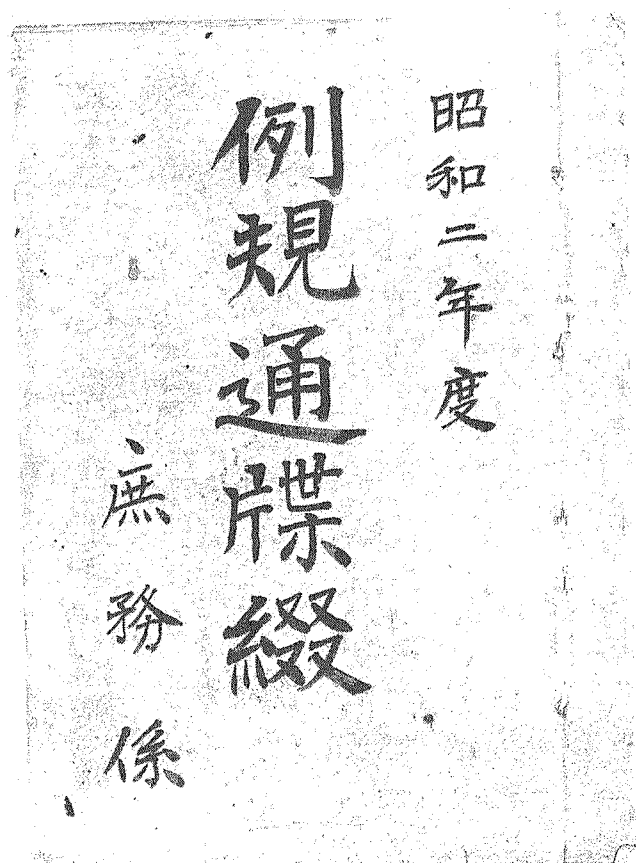 昭和二年度
例規通牒綴
庶務係